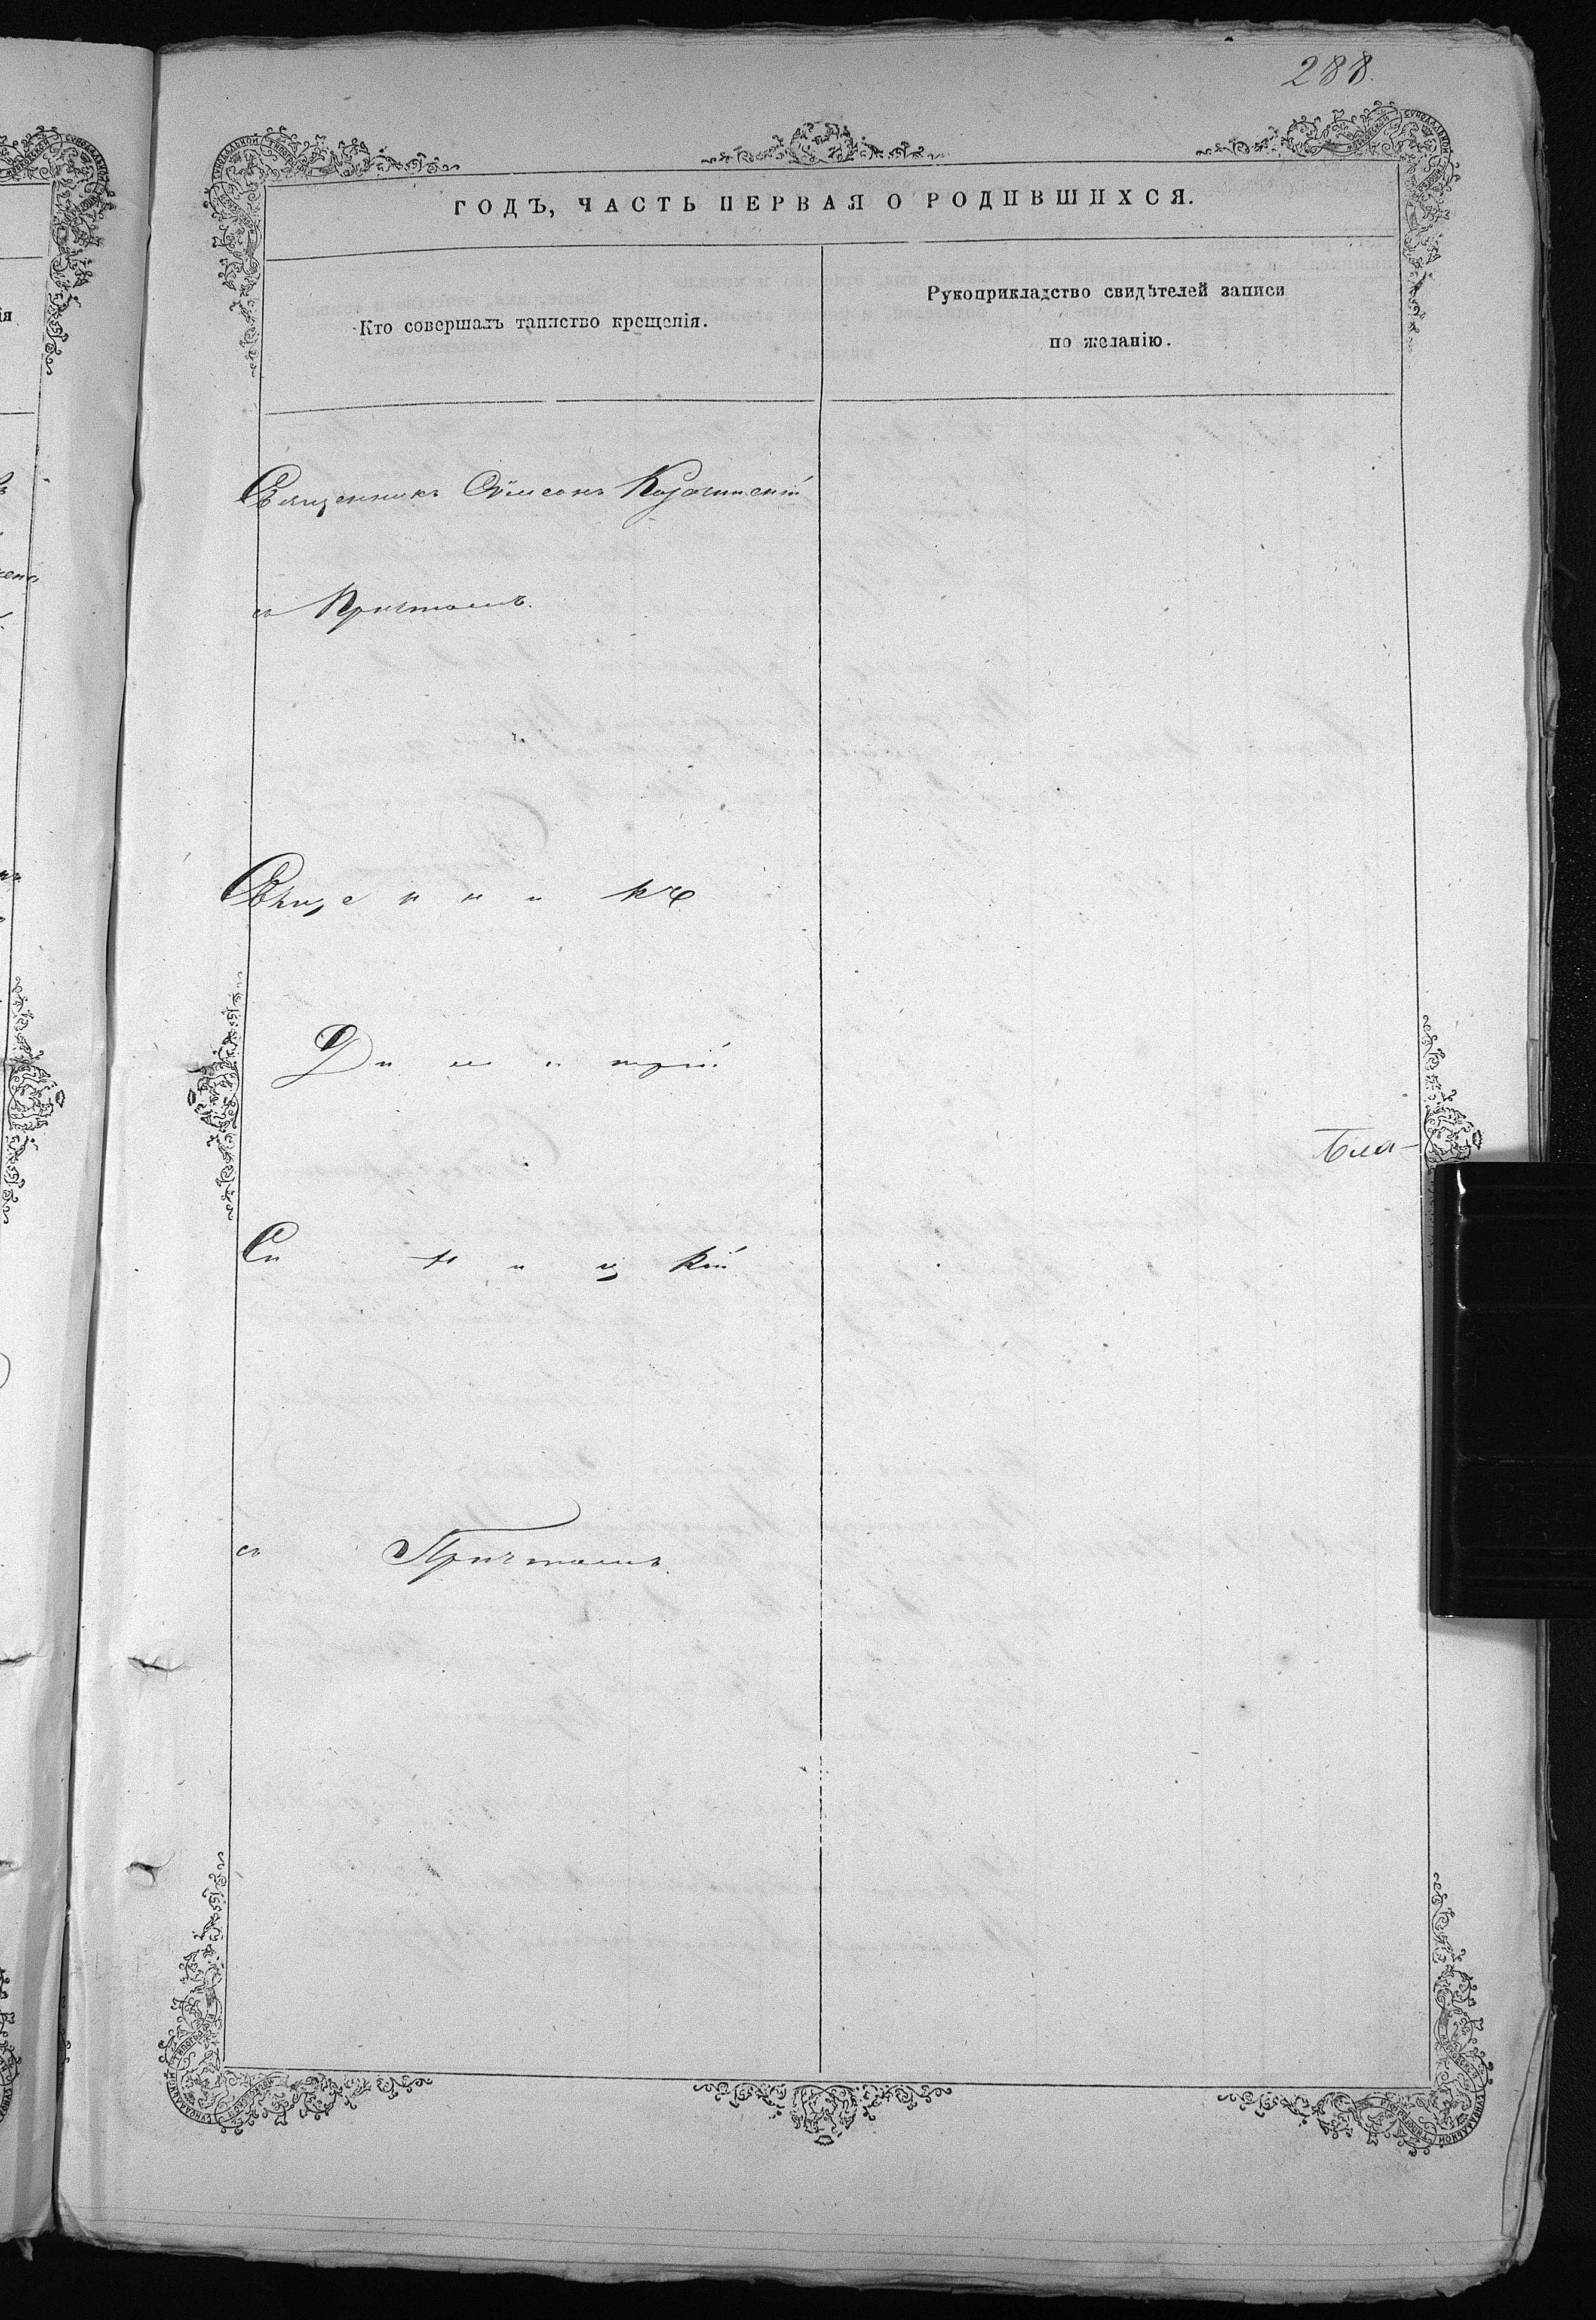 288.
ГОДЪ, ЧАСТЬ ПЕРВАЯ О РОДИВШИХСЯ.
Кто совершалъ таинство крещенія.
Рукоприкладство свидѣтелей записи
по желанію.
Священникъ Сѵмеонъ
съ Причтомъ.
Священникъ
Димитрій
Бла-
Синицкій
съ Причтомъ.